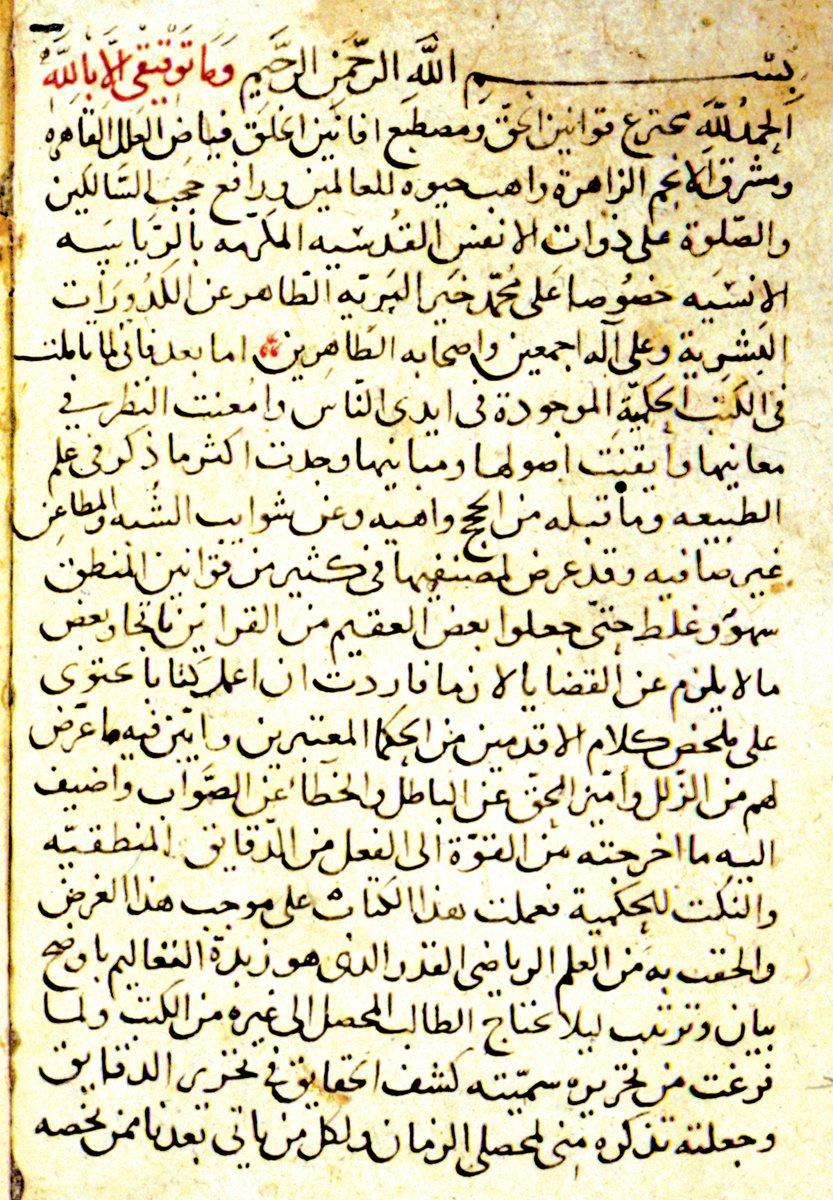 بسم الله الرحمن الرحيم وما توفيقي الا بالله
الحمد لله مخترع قوانين الحق ومصطبع افانين الخلق فياض العلل القاهره
ومشرق الانجم الزاهرة واهب حيوه للعالمين ورافع حجب السالكين
والصلوة على ذوات الانفس القدسيه المكرمه بالرياسيه
الانسيه خصوصا على محمد خير البريه الطاهر عن الكدورات
البشرية وعلى آله اجمعين واصحابه الطاهرين اما بعد فانى لما تاملت
فى الكتب الحكمية الموجودة فى ايدى الناس وامعنت النظر في
معانيها وأيقنت اصولها ومبانيها وجدت اكثر ما ذكر فى علم
الطبيعه وما قبله من الحجج واهيه وعن شوايب الشبه والمطاعن
غير صافيه وقد عرض لمصنفيها فى كثير من قوانين المنطق
سهو وغلط حتى جعلوا بعض العقيم من القراين ناتجا وبعض
ما لا يلزم عن القضايا لازما فاردت ان اعمل كتابا يحتوى
على ملخص كلام الاقدمين من الحكما المعتبرين وابين فيه ما عرض
لهم من الزلل وأميز الحق عن الباطل والخطأ عن الصواب واضيف
اليه ما اخرجته من القوة الى الفعل من الدقايق المنطقيه
والنكت الحكمية فعملت هذا الكتاب على موجب هذا الغرض
والحقت به من العلم الرياضى القدر الذى هو زبدة التعاليم باوضح
بيان وترتيب ليلا يحتاج الطالب المحصل الى غيره من الكتب ولما
فرغت من تحريره سميته كشف الحقايق في تحرير الدقايق
وجعلته تذكره منى لمحصلى الزمان ولكل من ياتى بعدنا ممن يخصه